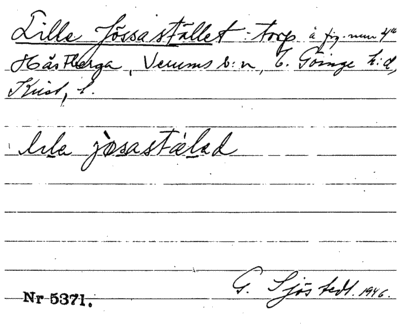 Lille Jössastället - torp å fig. num 4
Hästberga, Verums s:n, V. Göinge h:d,
Krist. l.
lɩla jösastäləd
G. Sjöstedt. 1946.
Nr 5371.